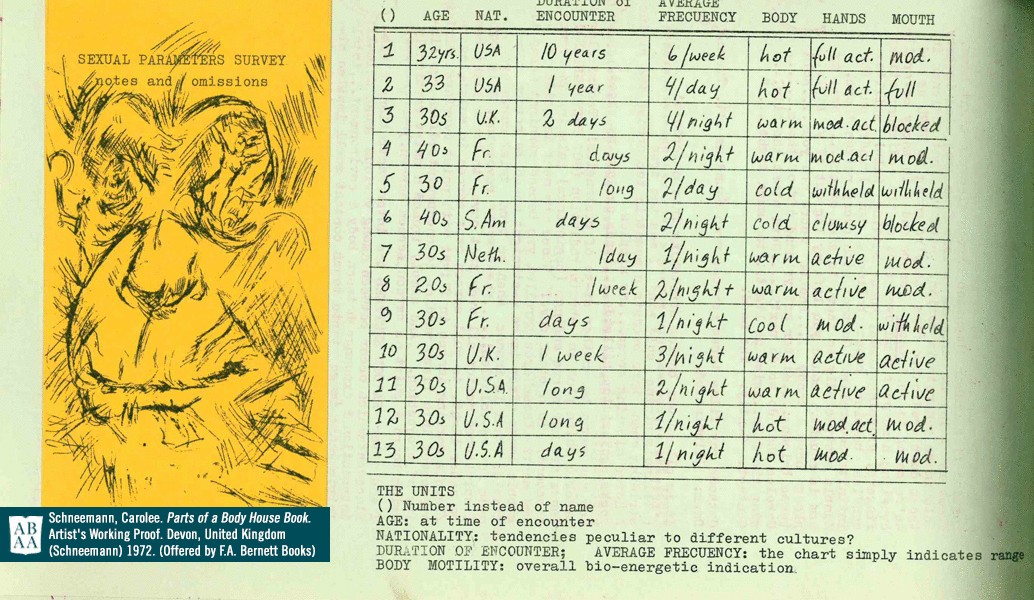 SEXUAL PARAMETERS SURVEY
notes and omissions
DURATION of AVERAGE
() AGE NAT. ENCOUNTER FRECUENCY BODY HANDS MOUTH
1 32yrs. USA 10 years 6/week hot full act. mod.
2 33 USA 1 year 4/day hot full act. full
3 30s U.K. 2 days 4/night warm mod.act. blocked
4 40s Fr. days 2/night warm mod.act mod.
5 30 Fr. long 2/day cold withheld withheld
6 40s S.Am days 2/night cold clumsy blocked
7 30s Neth. 1day 1/night warm active mod.
8 20s Fr. 1week 2/night+ warm active mod.
9 30s Fr. days 1/night cool mod. withheld
10 30s U.K. 1 week 3/night warm active active
11 30s U.S.A. long 2/night warm active active
12 30s U.S.A long 1/night hot mod.act. mod.
13 30s U.S.A days 1/night hot mod. mod.
THE UNITS
() Number instead of name
AGE: at time of encounter
NATIONALITY: tendencies peculiar to different cultures?
DURATION OF ENCOUNTER; AVERAGE FRECUENCY: the chart simply indicates range
BODY MOTILITY: overall bio-energetic indication.
AB
AA
Schneemann, Carolee. Parts of a Body House Book.
Artist's Working Proof. Devon, United Kingdom
(Schneemann) 1972. (Offered by F.A. Bernett Books)